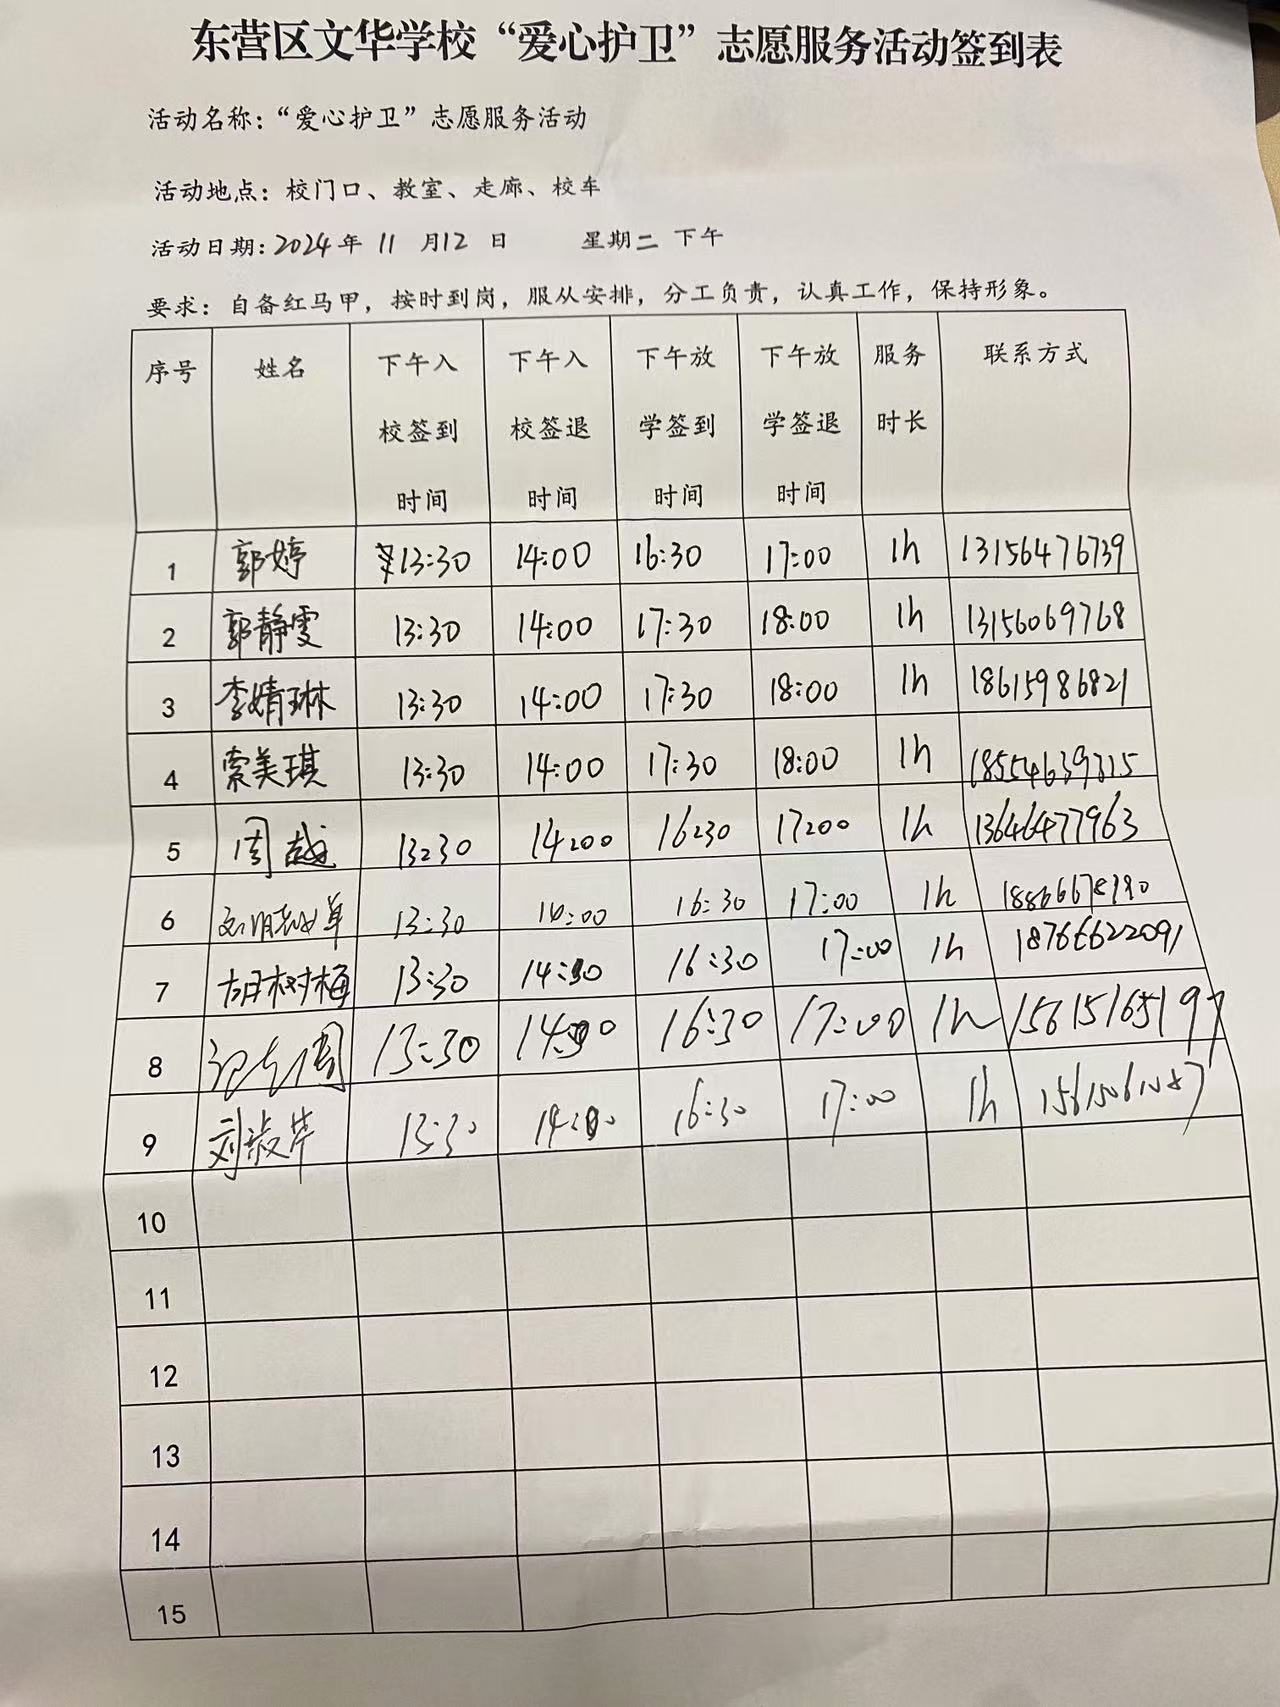 东营区文华学校“爱心护卫”志愿服务活动签到表
活动名称：“爱心护卫”志愿服务活动
活动地点：校门口、教室、走廊、校车
活动日期：2024年 11 月12 日 星期二 下午
要求：自备红马甲，按时到岗，服从安排，分工负责，认真工作，保持形象。
序号 姓名 下午入校签到时间 下午入校签退时间 下午放学签到时间 下午放学签退时间 服务时长 联系方式
1 郭婷 13:30 14:00 16:30 17:00 1h 13156476739
2 郭静雯 13:30 14:00 17:30 18:00 1h 13156069768
3 李婧琳 13:30 14:00 17:30 18:00 1h 18615986821
4 索美琪 13:30 14:00 17:30 18:00 1h
5 周越 13:30 14:00 16:30 17:00 1h 13646477963
6 13:30 14:00 16:30 17:00 1h
7 胡树梅 13:30 14:00 16:30 17:00 1h 18766622091
8 13:30 14:00 16:30 17:00 1h 15615165197
9 刘淑芹 13:30 14:00 16:30 17:00 1h
10
11
12
13
14
15